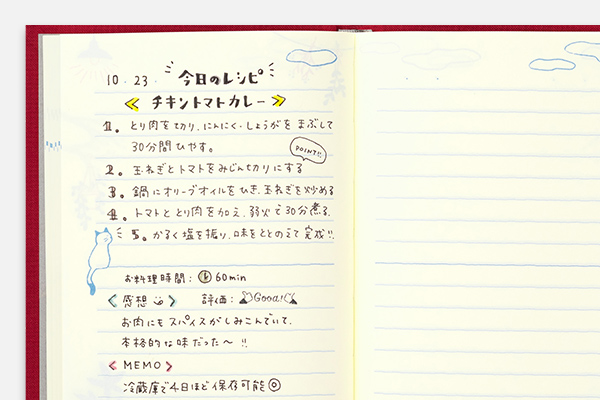 10.23. 今日のレシピ
チキントマトカレー
1. とり肉を切り、にんにく・しょうがをまぶして
30分間ひやす。
POINT!!
2. 玉ねぎとトマトをみじん切りにする
3. 鍋にオリーブオイルをひき、玉ねぎを炒める
4. トマトととり肉を加え、弱火で30分煮る。
5. かるく塩を振り、味をととのえて完成!!
お料理時間: 60min
感想 評価: Good!
お肉にもスパイスがしみこんでいて、
本格的な味だった〜!!
MEMO
冷蔵庫で4日ほど保存可能◎